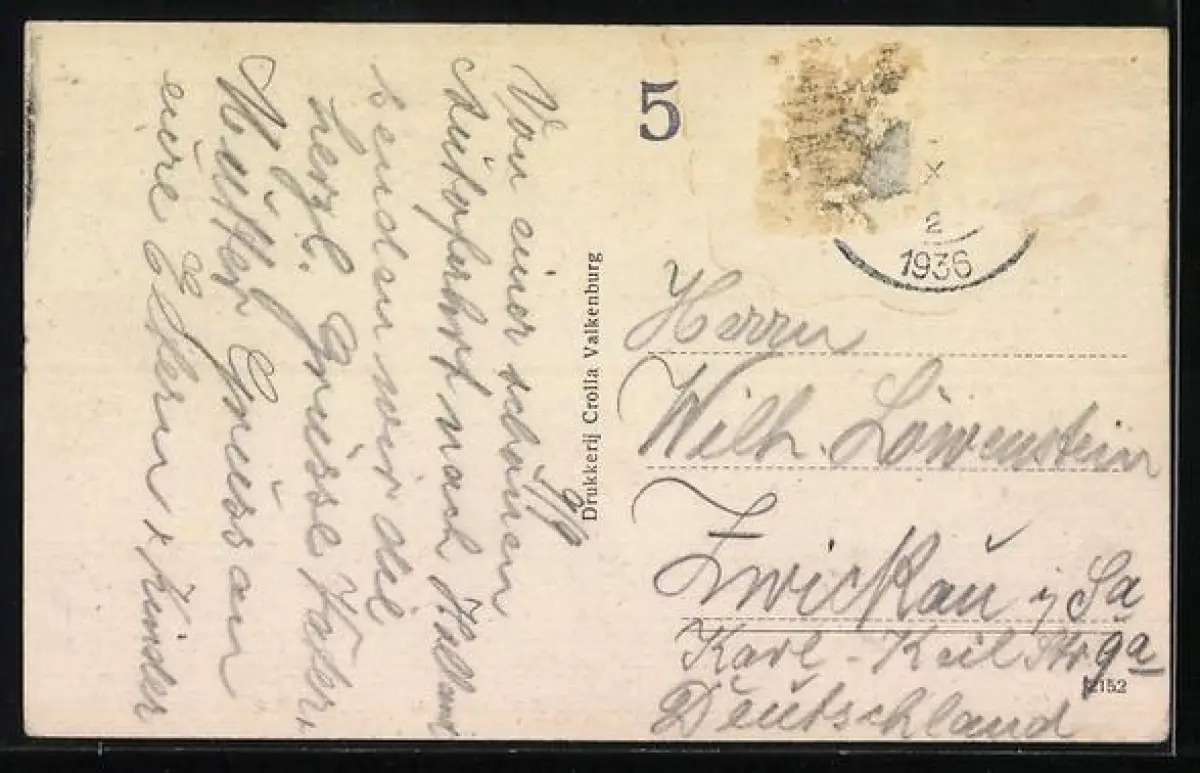 5
2
1936
9/9
Von einer schönen
Autofahrt nach Holland
senden wir die
herzl. Grüsse Vater,
Mutter, Grüss an
eure Eltern + Kinder
Drukkerij Crolla Valkenburg
Herrn
Wilh. Löwenstein
Zwickau i/Sa
Karl-Keil Str 9a
Deutschland
2152